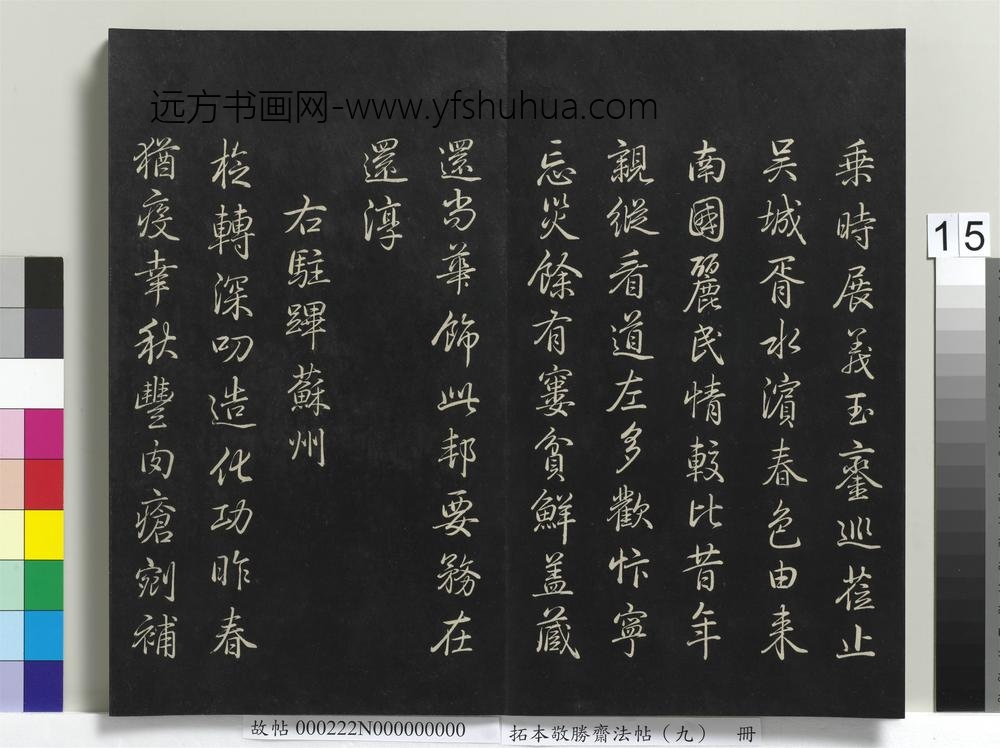 远方书画网-www.yfshuhua.com
乗時展義玉鑾巡蒞止
吴城胥水濱春色由来
南國麗民情較比昔年
親縱看道左多歡忭寧
忘災餘有窶貧鮮盖藏
還尚華飾此邦要務在
還淳
右駐蹕蘇州
樞轉深叨造化功昨春
猶疫幸秋豐肉瘡剜補
15
故帖 000222N000000000
拓本敬勝齋法帖（九） 冊